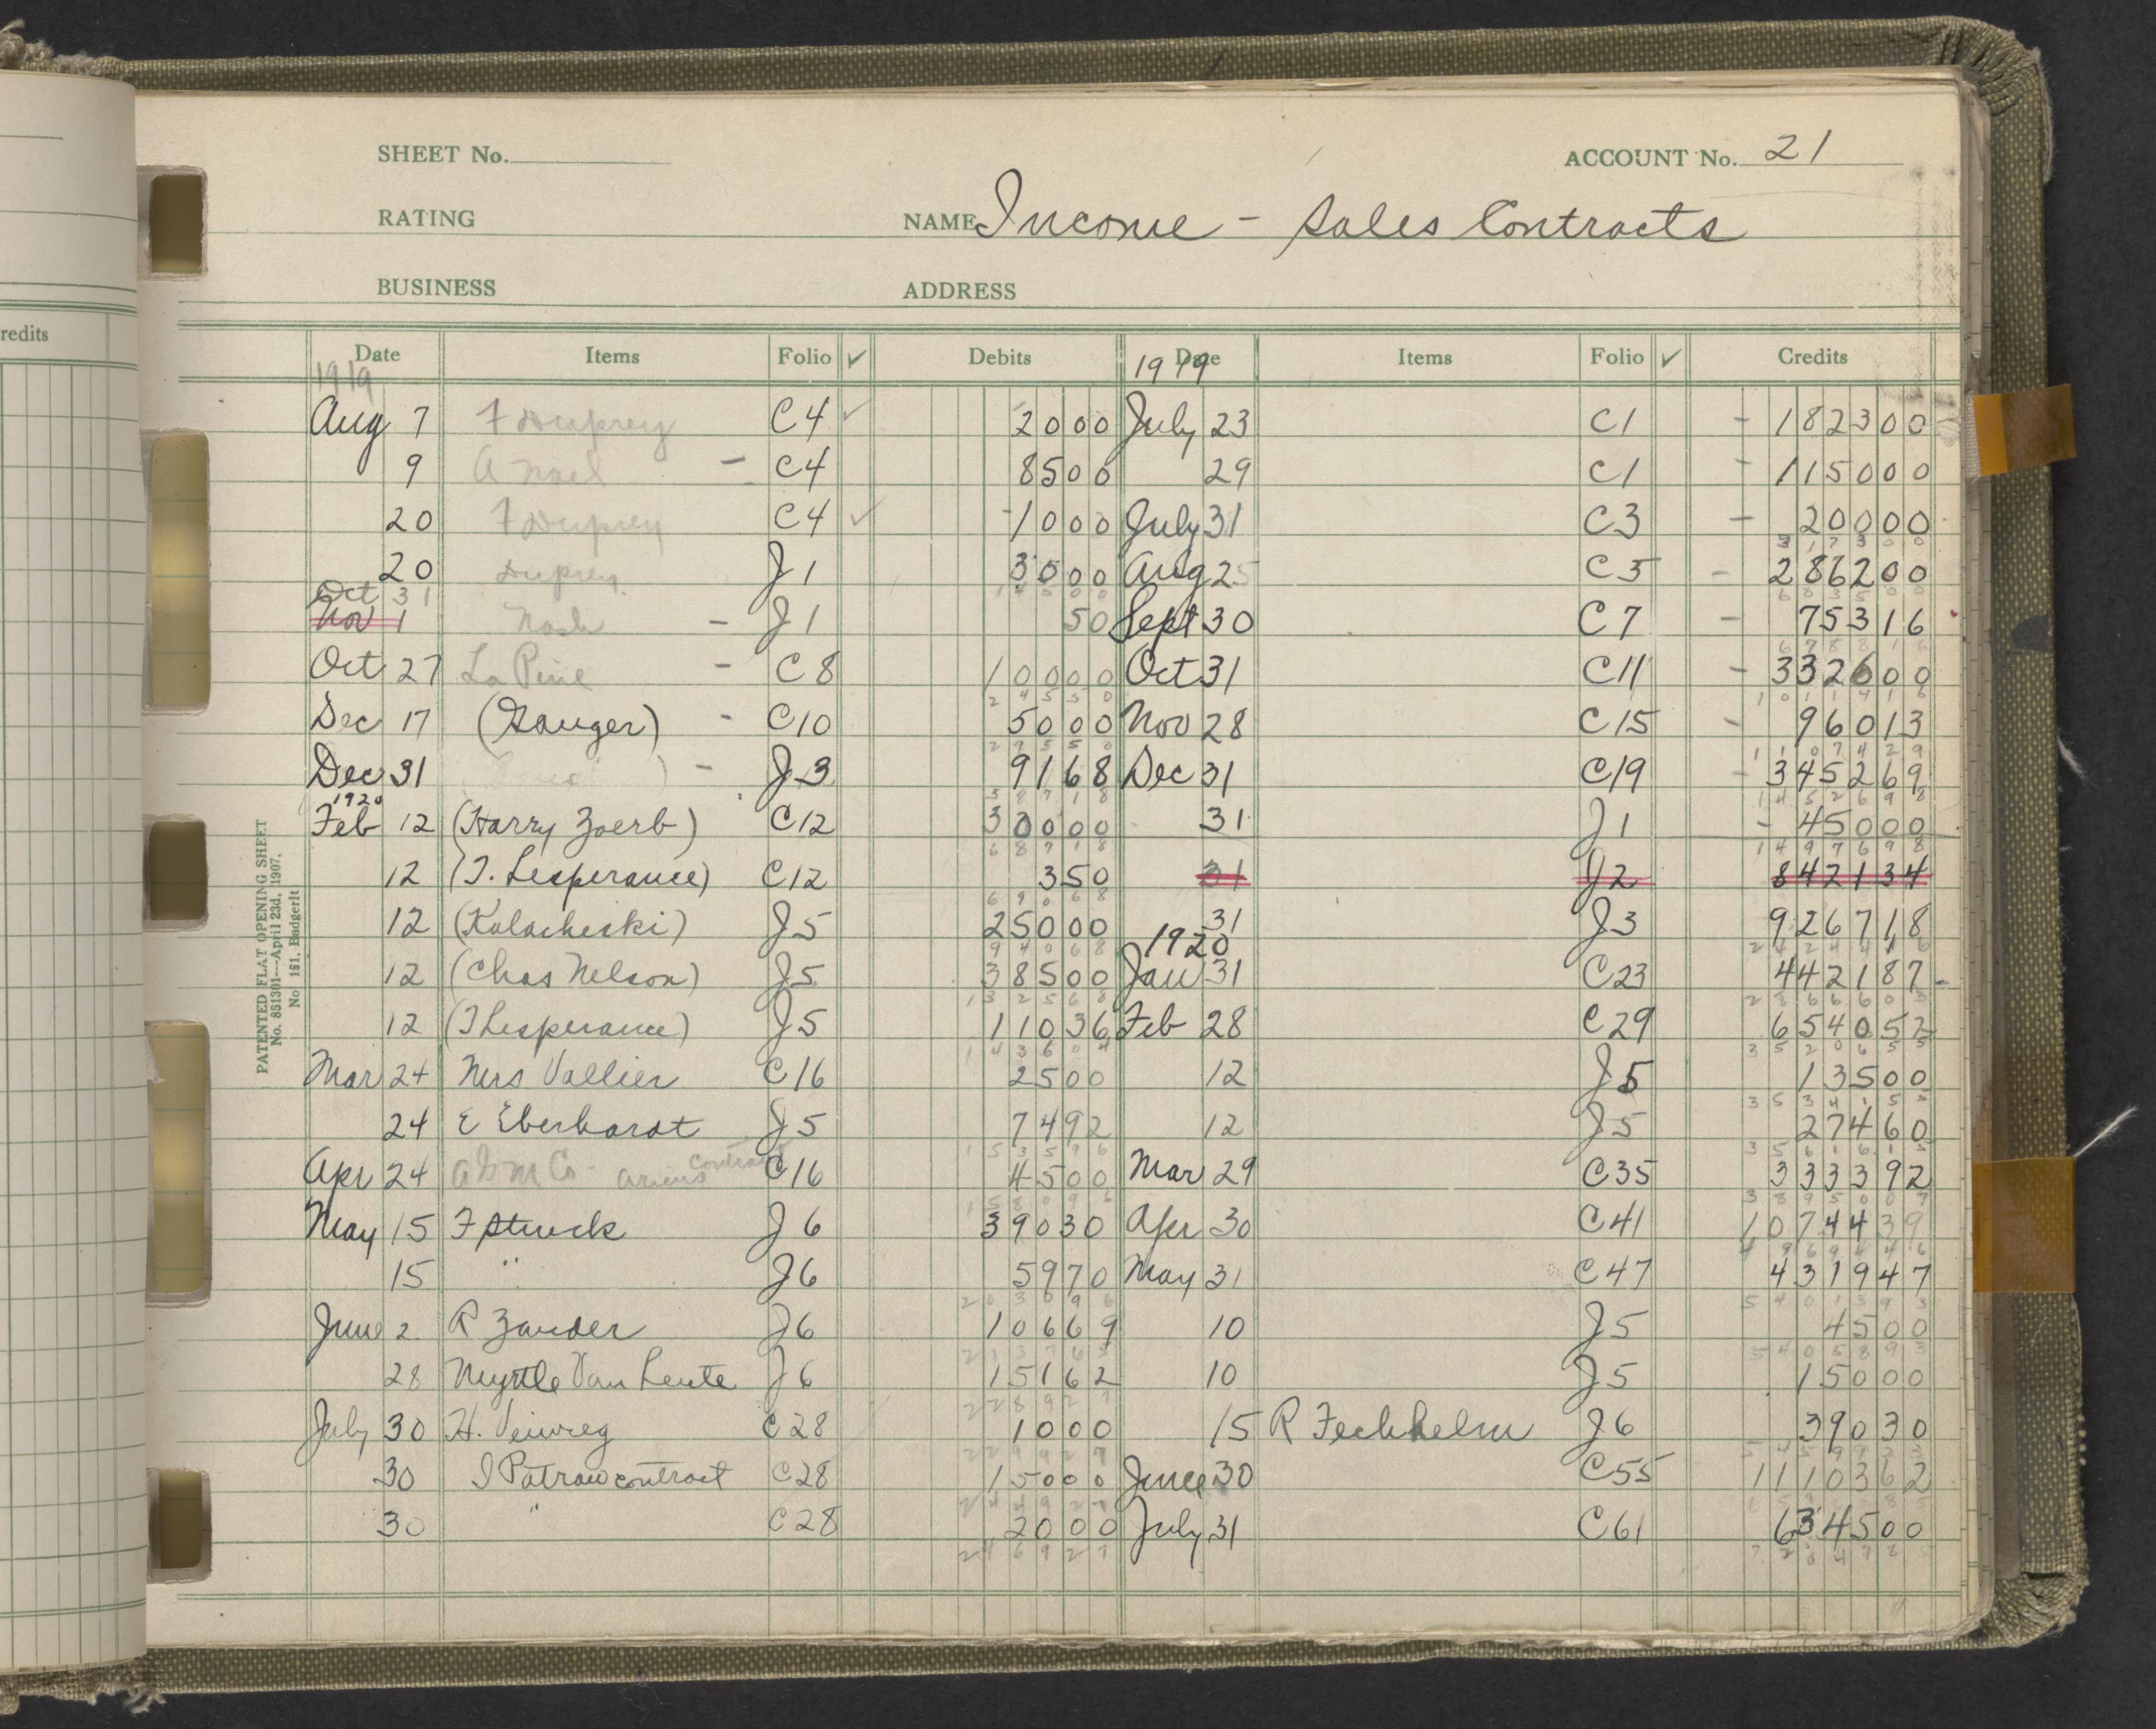 redits
SHEET No. ACCOUNT No. 21
RATING NAME Income - Sales Contracts
BUSINESS ADDRESS
Date Items Folio ✓ Debits Date Items Folio ✓ Credits
1919 1919
Aug 7 F Duprey C4 ✓ 2000 July 23 C1 - 182300
9 A Noel - C4 8500 29 C1 - 115000
20 F Duprey C4 ✓ 1000 July 31 C3 - 20000
317300
20 Duprey J1 3000 Aug 25 C5 - 286200
Oct 31 14000 603500
Nov 1 Nash - J1 50 Sept 30 C7 - 75316
678816
Oct 27 La Pine - C8 10000 Oct 31 C11 - 332600
24550 1011416
Dec 17 (Gauger) - C10 5000 Nov 28 C15 - 96013
29550 1107429
Dec 31 - J3 9168 Dec 31 C19 - 345269
1920 38718 1452698
Feb 12 (Harry Zoerb) C12 30000 31 J1 - 45000
68718 1497698
12 (T. Lesperance) C12 350 31 J2 842134
69068
12 (Kolacheski) J5 25000 31 J3 926718
94068 1920 2424416
12 (Chas Nelson) J5 38500 Jan 31 C23 442187 -
132568 2866603
12 (T Lesperance) J5 11036 Feb 28 C29 654052
143604 3520655
Mar 24 Mrs Vallier C16 2500 12 J5 13500
3534155
24 E Eberhardt J5 7492 12 J5 27460
153596 3561615
Apr 24 contract C16 4500 Mar 29 C35 333392
158096 3895007
May 15 F Struck J6 39030 Apr 30 C41 1074439
4969446
15 " J6 5970 May 31 C47 431947
203096 5401393
June 2 R Zander J6 10669 10 J5 4500
213765 5405893
28 Myrtle Van Lente J6 15162 10 J5 15000
228927
July 30 H. C28 1000 15 R Fechhelm J6 39030
229927 5459923
30 J Patraw contract C28 15000 June 30 C55 1110362
244927
30 " C28 2000 July 31 C61 634500
246927
PATENTED FLAT OPENING SHEET
No. 851301—April 23d, 1907.
No 161. Badgerlt